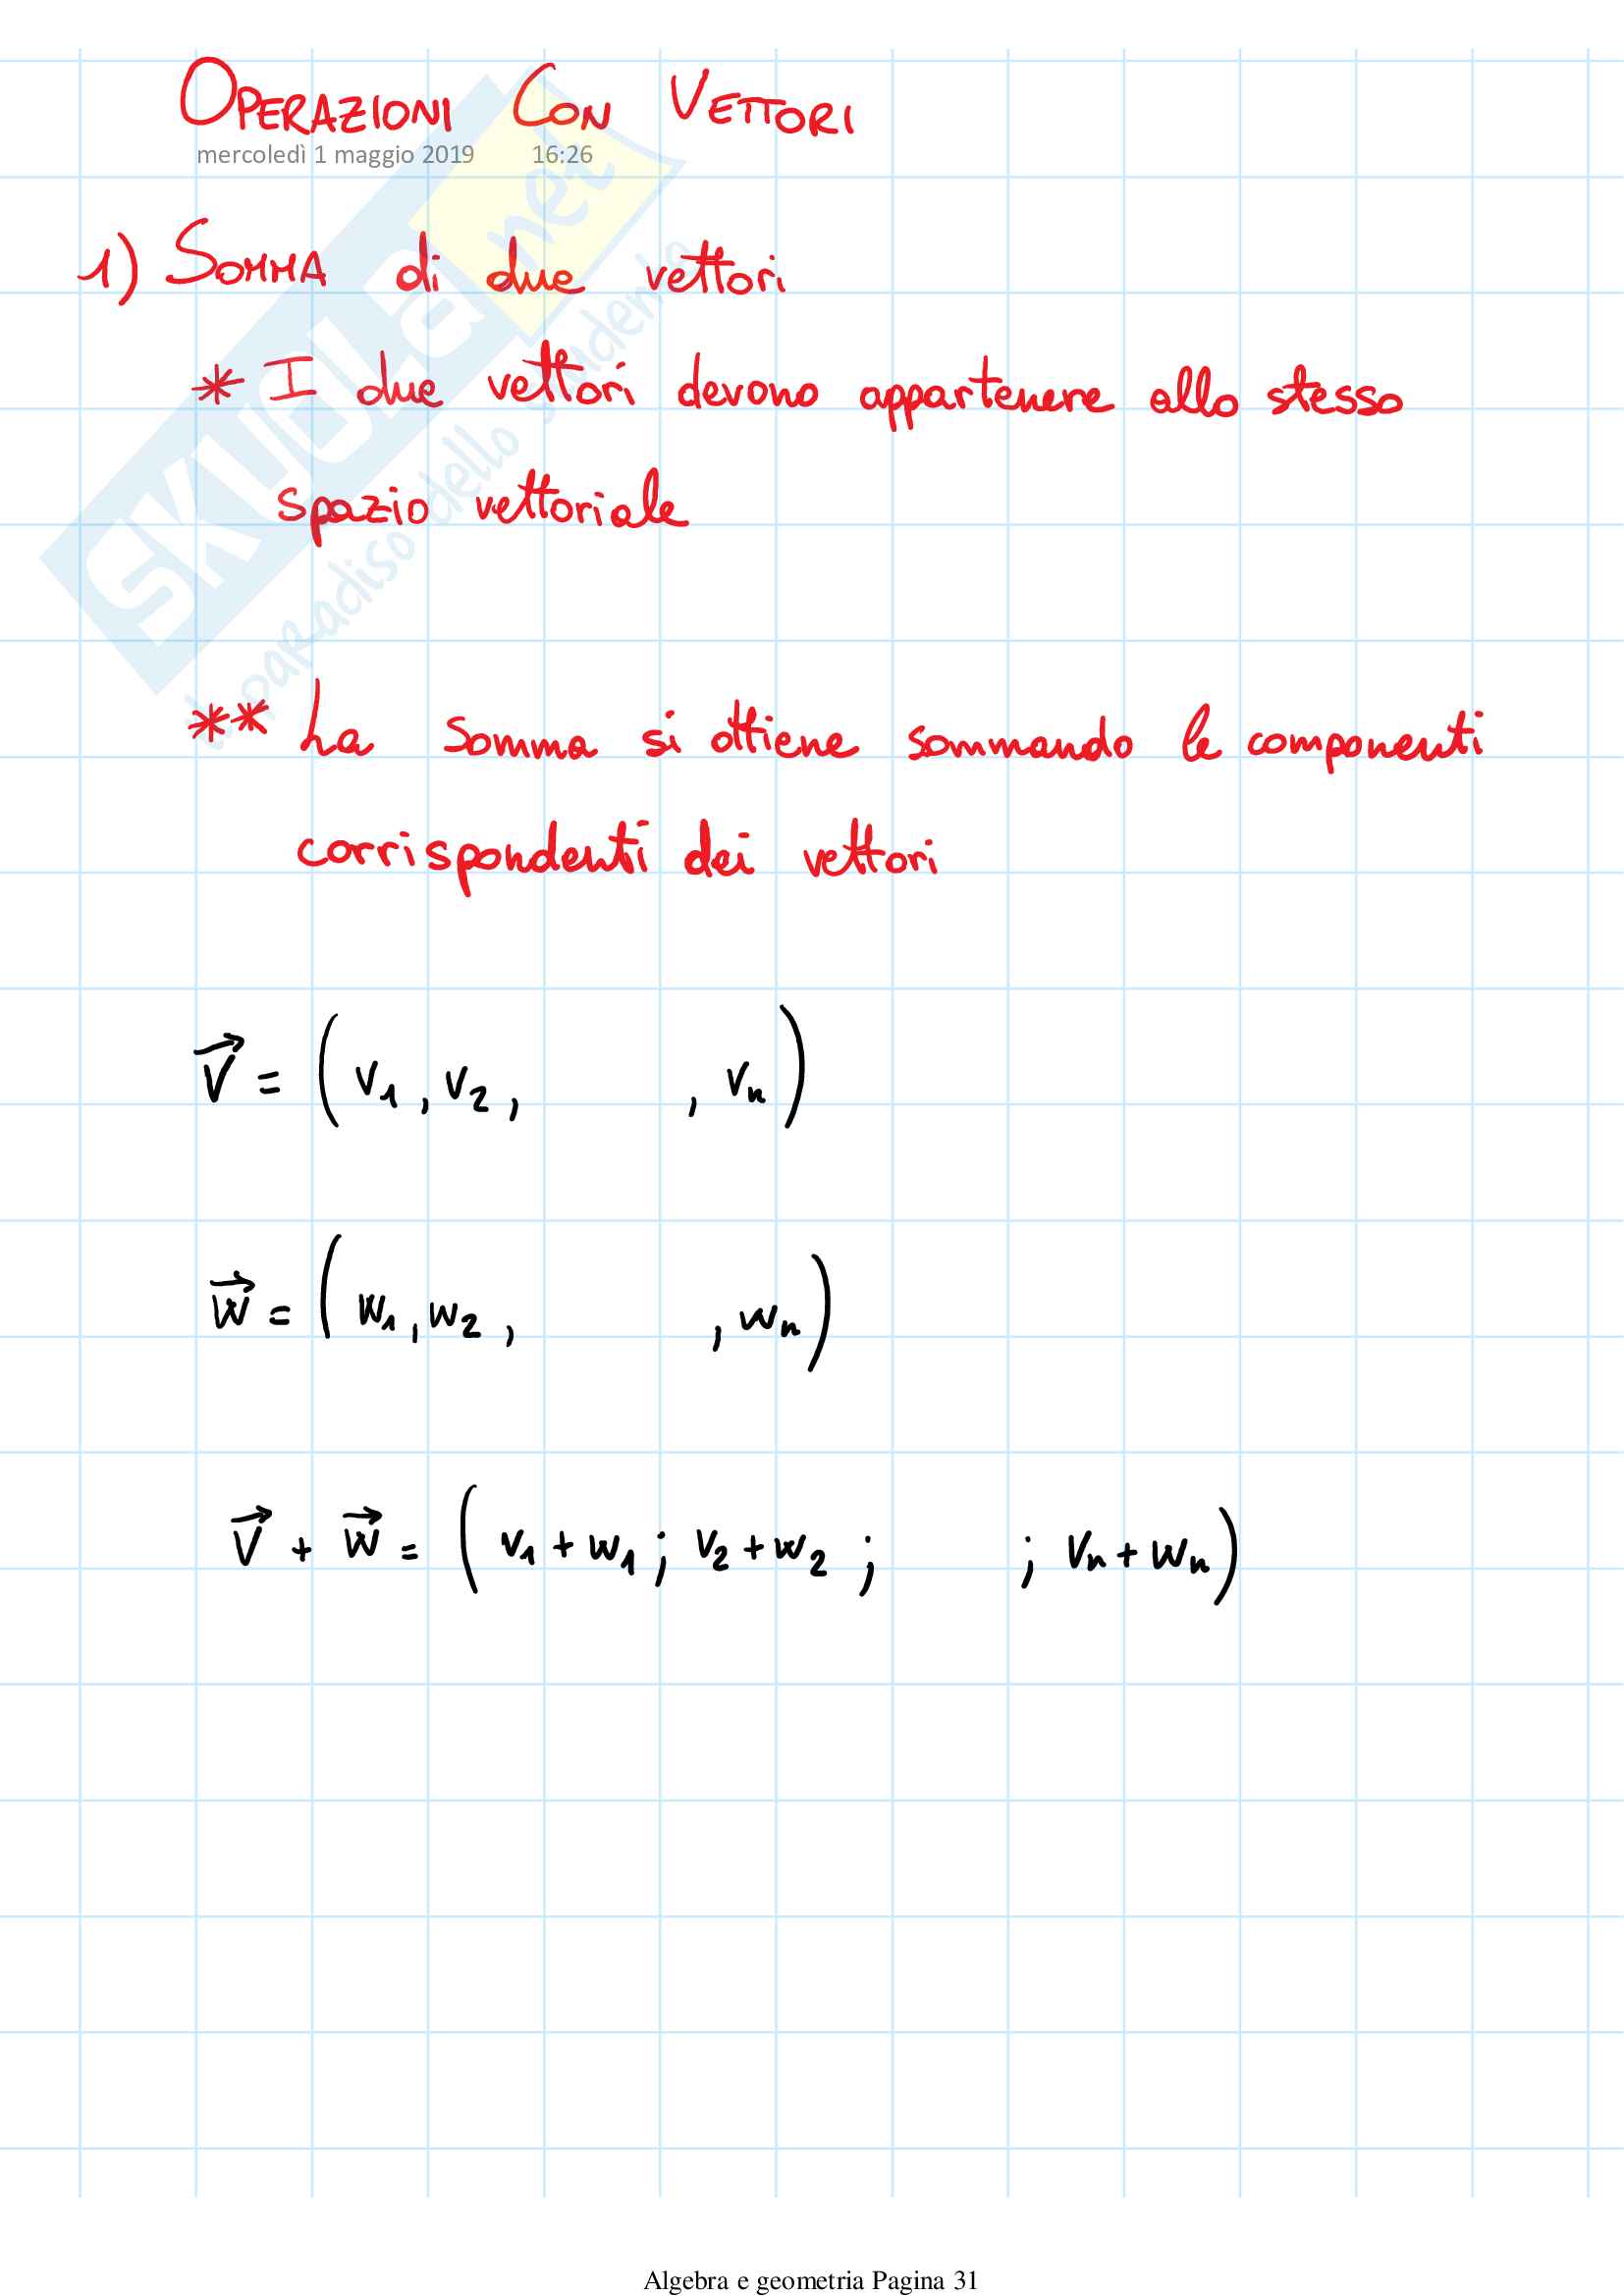 OPERAZIONI CON VETTORI
mercoledì 1 maggio 2019 16:26
1) SOMMA di due vettori
* I due vettori devono appartenere allo stesso
spazio vettoriale
** La somma si ottiene sommando le componenti
corrispondenti dei vettori
v⃗ = (v₁, v₂, , vₙ)
w⃗ = (w₁, w₂, , wₙ)
v⃗ + w⃗ = (v₁+w₁; v₂+w₂; ; vₙ+wₙ)
SKUOLA.net
il paradiso dello studente
Algebra e geometria Pagina 31